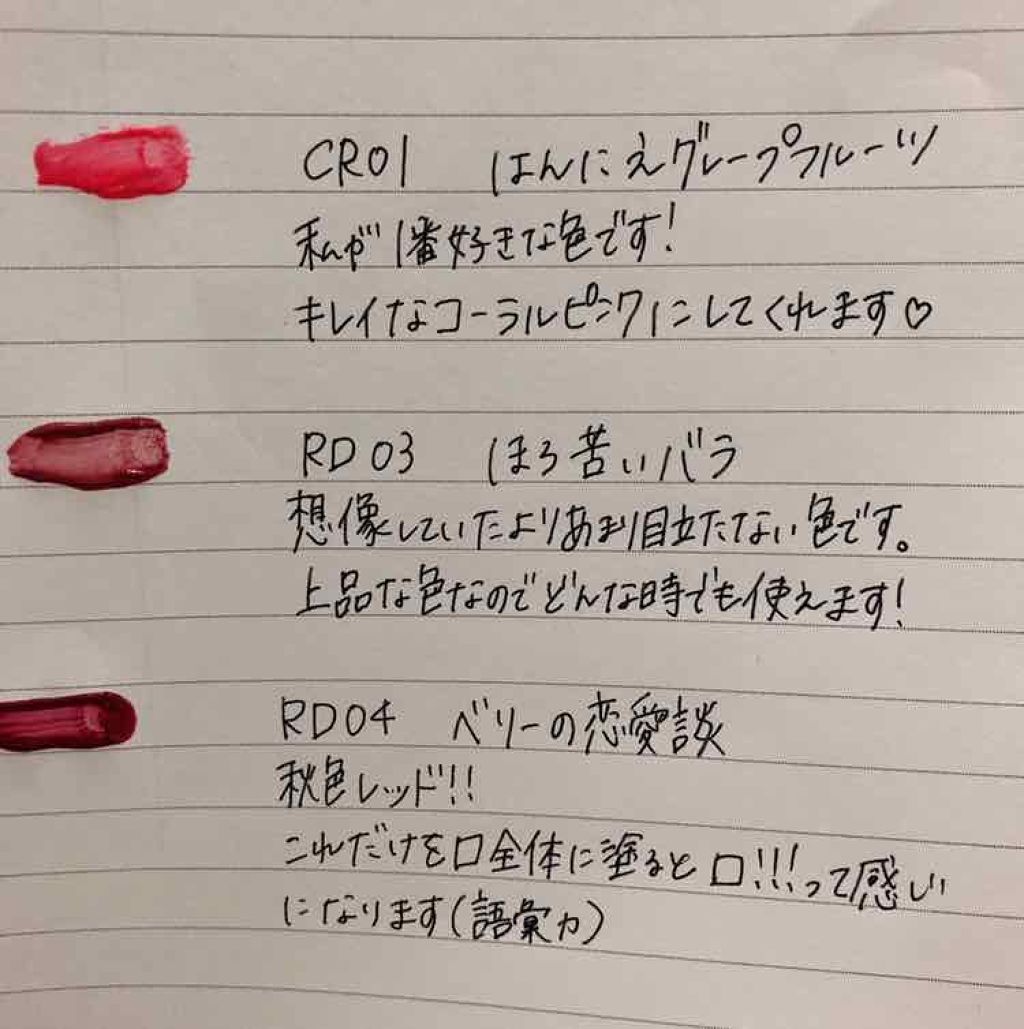 CR01 はんにえグレープフルーツ
私が1番好きな色です!
キレイなコーラルピンクにしてくれます♡
RD03 ほろ苦いバラ
想像していたよりあまり目立たない色です。
上品な色なのでどんな時でも使えます!
RD04 ベリーの恋愛談
秋色レッド!!
これだけを口全体に塗ると口!!!って感じ
になります(語彙力)